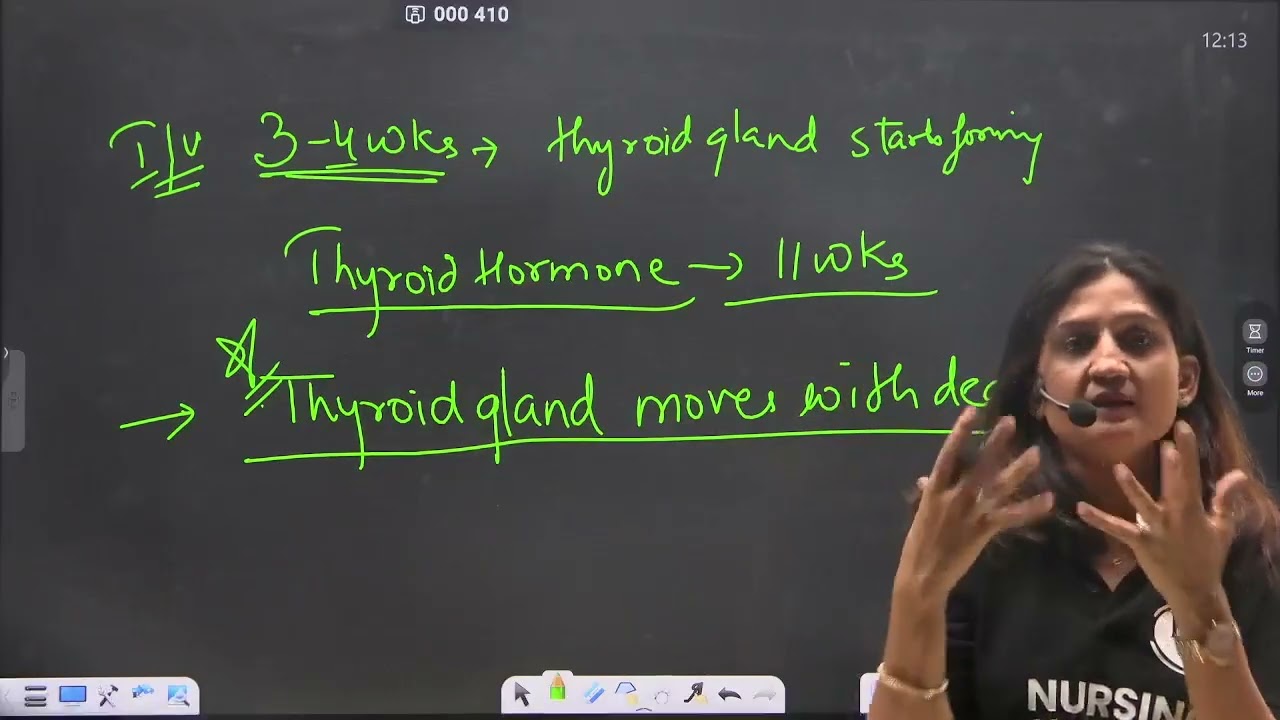 000 410
12:13
I/U 3-4 wks → thyroid gland starts forming
Thyroid Hormone → 11 wks
→ Thyroid gland moves with deg
Timer
More
NURSING